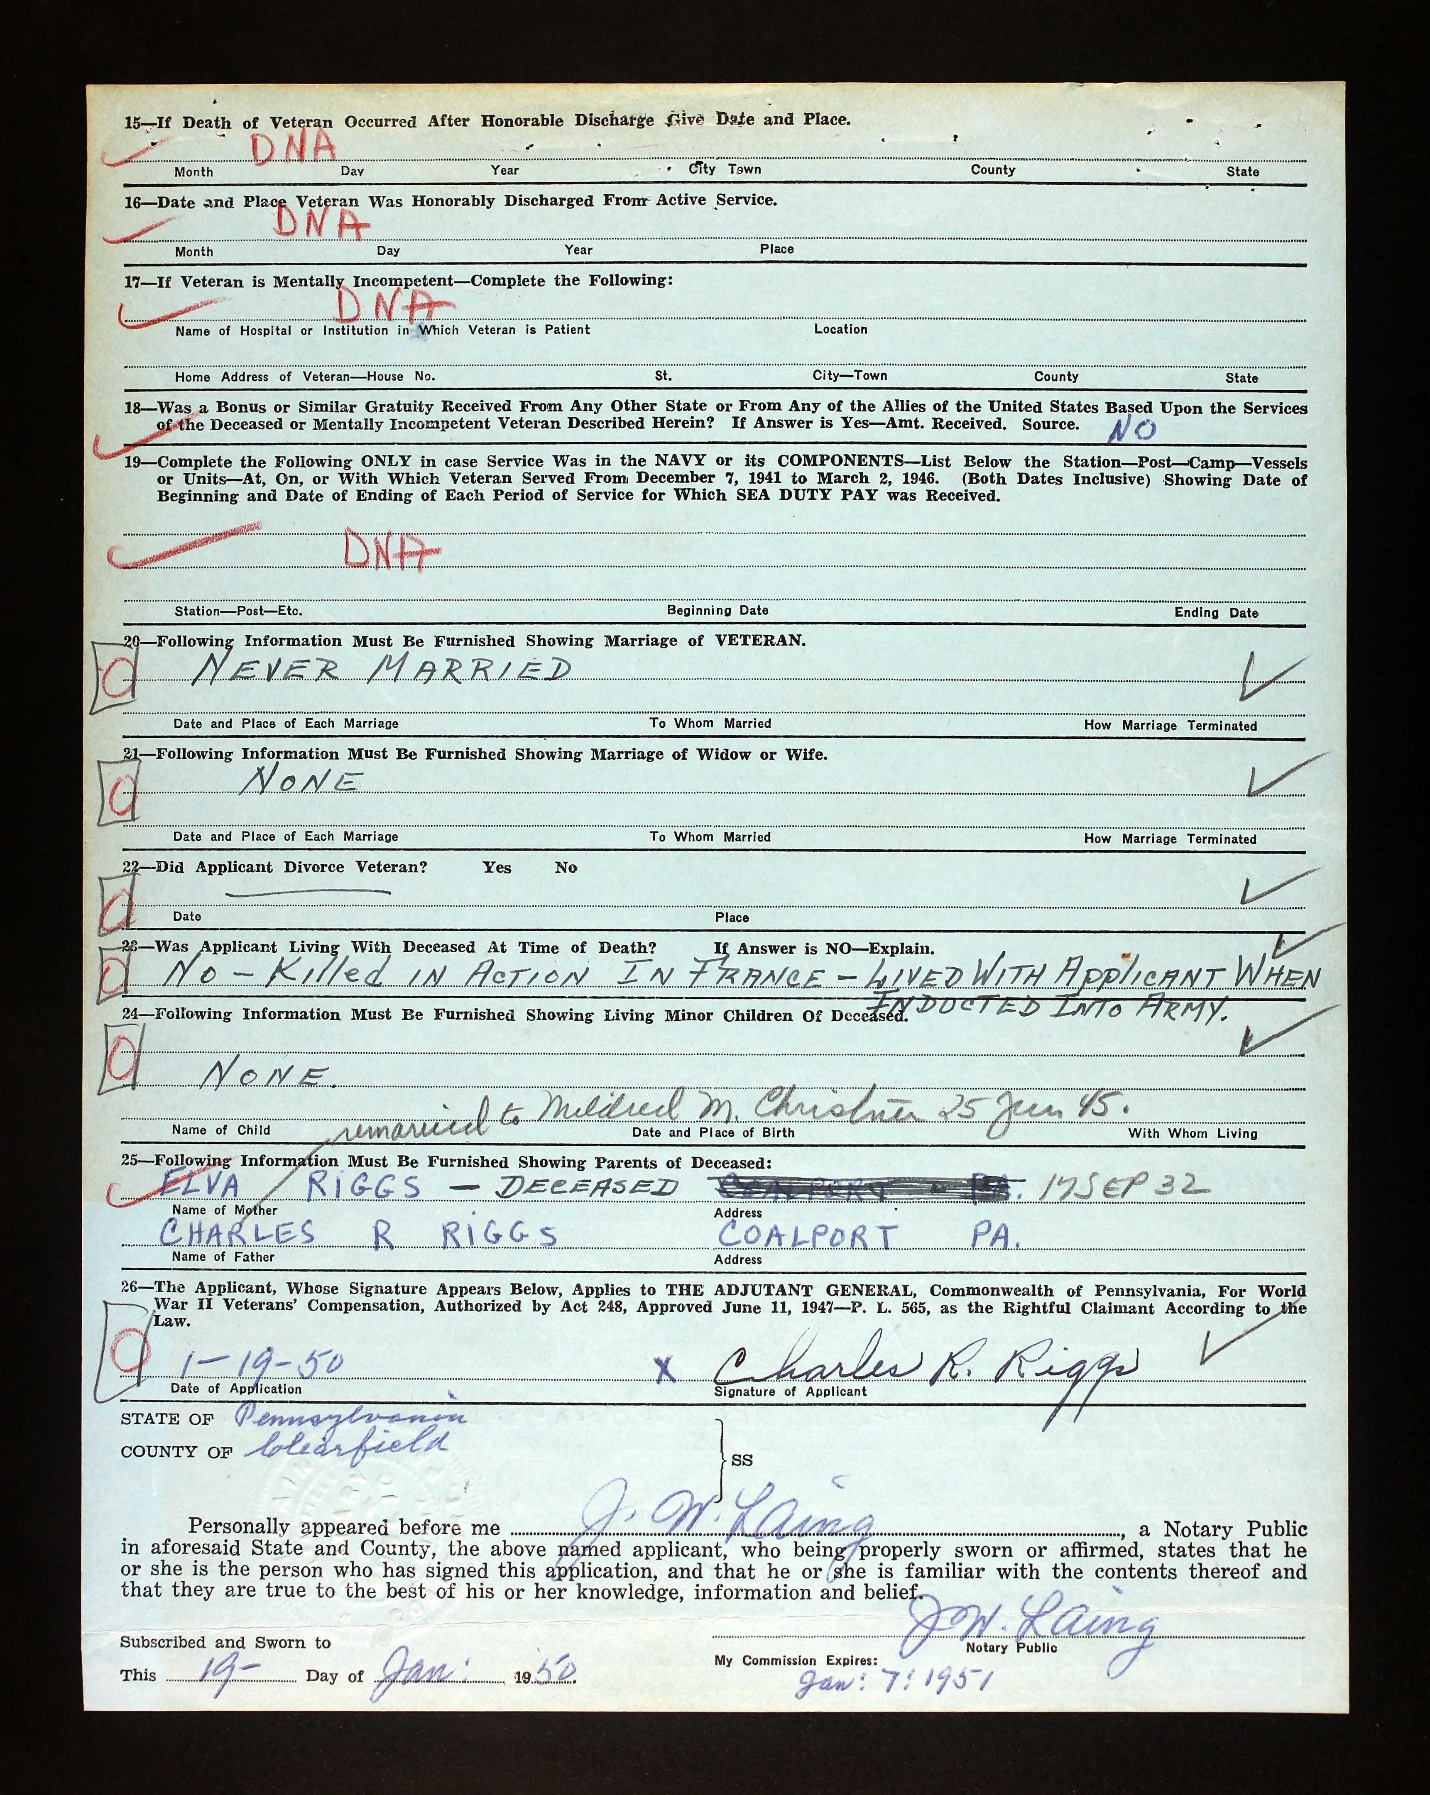 15—If Death of Veteran Occurred After Honorable Discharge Give Date and Place.
DNA
Month Day Year City Town County State
16—Date and Place Veteran Was Honorably Discharged From Active Service.
DNA
Month Day Year Place
17—If Veteran is Mentally Incompetent—Complete the Following:
DNA
Name of Hospital or Institution in Which Veteran is Patient Location
Home Address of Veteran—House No. St. City—Town County State
18—Was a Bonus or Similar Gratuity Received From Any Other State or From Any of the Allies of the United States Based Upon the Services
of the Deceased or Mentally Incompetent Veteran Described Herein? If Answer is Yes—Amt. Received. Source. NO
19—Complete the Following ONLY in case Service Was in the NAVY or its COMPONENTS—List Below the Station—Post—Camp—Vessels
or Units—At, On, or With Which Veteran Served From December 7, 1941 to March 2, 1946. (Both Dates Inclusive) Showing Date of
Beginning and Date of Ending of Each Period of Service for Which SEA DUTY PAY was Received.
DNA
Station—Post—Etc. Beginning Date Ending Date
20—Following Information Must Be Furnished Showing Marriage of VETERAN.
NEVER MARRIED
Date and Place of Each Marriage To Whom Married How Marriage Terminated
21—Following Information Must Be Furnished Showing Marriage of Widow or Wife.
NONE
Date and Place of Each Marriage To Whom Married How Marriage Terminated
22—Did Applicant Divorce Veteran? Yes No
Date Place
23—Was Applicant Living With Deceased At Time of Death? If Answer is NO—Explain.
NO - Killed IN ACTION IN FRANCE - LIVED WITH APPlICANT WHEN
INDUCTED INTO ARMY.
24—Following Information Must Be Furnished Showing Living Minor Children Of Deceased.
NONE.
remarried to Mildred M. Christner 25 Jun 45.
Name of Child Date and Place of Birth With Whom Living
25—Following Information Must Be Furnished Showing Parents of Deceased:
ELVA RIGGS - DECEASED COALPORT - PA. 17 SEP 32
Name of Mother Address
CHARLES R RIGGS COALPORT PA.
Name of Father Address
26—The Applicant, Whose Signature Appears Below, Applies to THE ADJUTANT GENERAL, Commonwealth of Pennsylvania, For World
War II Veterans' Compensation, Authorized by Act 248, Approved June 11, 1947—P. L. 565, as the Rightful Claimant According to the
Law.
1-19-50 X Charles R. Riggs
Date of Application Signature of Applicant
STATE OF Pennsylvania
COUNTY OF Clearfield
SS
Personally appeared before me J. W. Laing, a Notary Public
in aforesaid State and County, the above named applicant, who being properly sworn or affirmed, states that he
or she is the person who has signed this application, and that he or she is familiar with the contents thereof and
that they are true to the best of his or her knowledge, information and belief.
J. W. Laing
Subscribed and Sworn to Notary Public
My Commission Expires:
This 19- Day of Jan. 1950.
Jan. 7. 1951